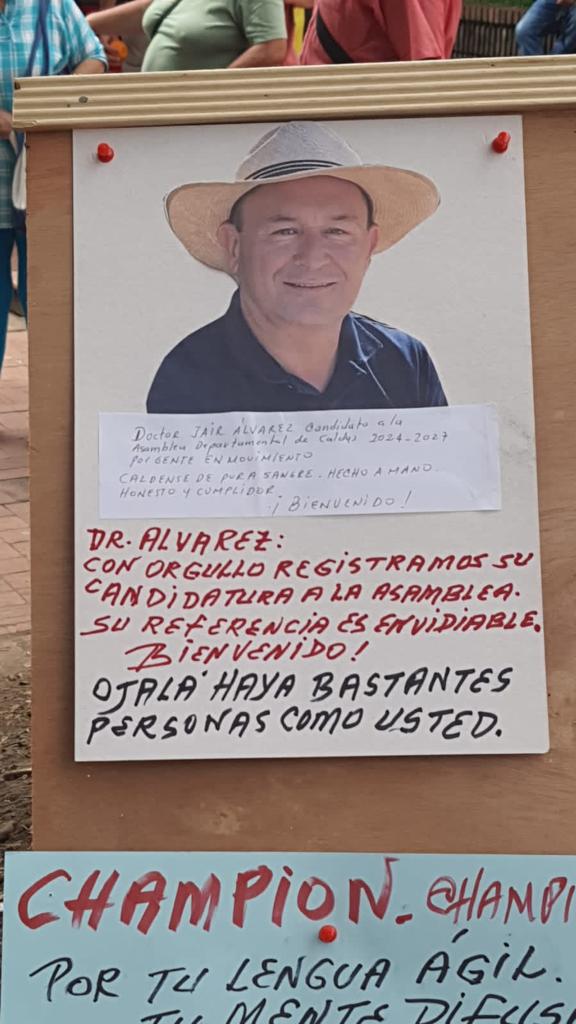 Doctor JAIR ÁLVAREZ Candidato a la
Asamblea Departamental de Caldas 2024-2027
POR GENTE EN MOVIMIENTO
CALDENSE DE PURA SANGRE. HECHO A MANO.
HONESTO Y CUMPLIDOR
¡BIENVENIDO!
DR. ALVAREZ:
CON ORGULLO REGISTRAMOS SU
CANDIDATURA A LA ASAMBLEA.
SU REFERENCIA ES ENVIDIABLE.
BIENVENIDO!
OJALÁ HAYA BASTANTES
PERSONAS COMO USTED.
CHAMPION. CHAMPI
POR TU LENGUA ÁGIL.
TU MENTE DIFUS